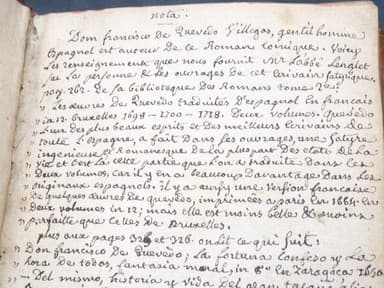 nota.
Dom francisco De Quevedo Villegas, gentilhomme
Espagnol est auteur de ce Roman Comique. Voicy
Les renseignements que nous fournit Mr L'abbé Lenglet
sur La personne & les ouvrages de cet ecrivain satyrique,
pag. 262. De sa bibliotheque Des Romans tome 2e:
" Les œuvres de Quevedo traduites D'espagnol En francais
" in 12. bruxelles 1698 - 1700 - 1718. Deux volumes. Quevedo
" L'un des plus beaux esprits et Des meilleurs ecrivains de
" toute L'espagne, a fait Dans ses ouvrages, une satyre
" ingenieuse & Romanesque de la pluspart Des etats De La
" Vie et C'est La cette partie que L'on a traduite Dans ces
" Deux volumes, car il y en a beaucoup Davantage Dans Les
" originaux espagnols. il y a aussy une Version francaise
" de quelques œuvres de quevedo, imprimées a paris en 1664. en
" Deux volumes in 12; mais elle est moins belle & moins
" parfaite que celles de Bruxelles.
plus aux pages 325 et 326. on Lit ce qui suit:
" Don francisco De Quevedo; La fortuna Con seso y La
" hora De todos, fantasia moral, in 8° En Zaragoça 1650
" - Del mismo, historia y vida Del gran tacaño